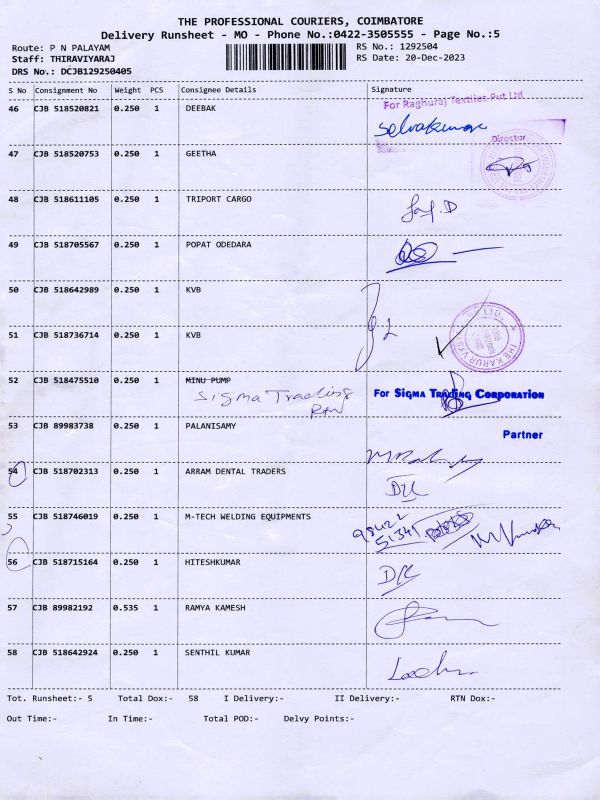 THE PROFESSIONAL COURIERS, COIMBATORE
Delivery Runsheet - MO - Phone No.:0422-3505555 - Page No.:5
Route: P N PALAYAM RS No.: 1292504
Staff: THIRAVIYARAJ RS Date: 20-Dec-2023
DRS No.: DCJB129250405
S No Consignment No Weight PCS Consignee Details Signature
For Raghuraj Textiles Pvt Ltd
46 CJB 518520821 0.250 1 DEEBAK
Selvakumar
Director
47 CJB 518520753 0.250 1 GEETHA
48 CJB 518611105 0.250 1 TRIPORT CARGO
49 CJB 518705567 0.250 1 POPAT ODEDARA
50 CJB 518642989 0.250 1 KVB
51 CJB 518736714 0.250 1 KVB
52 CJB 518475510 0.250 1 MINU PUMP
Sigma Trading
For SIGMA TRADING CORPORATION
53 CJB 89983738 0.250 1 PALANISAMY
Partner
54 CJB 518702313 0.250 1 ARRAM DENTAL TRADERS
55 CJB 518746019 0.250 1 M-TECH WELDING EQUIPMENTS
98422
51341
56 CJB 518715164 0.250 1 HITESHKUMAR
57 CJB 89982192 0.535 1 RAMYA KAMESH
58 CJB 518642924 0.250 1 SENTHIL KUMAR
Tot. Runsheet:- 5 Total Dox:- 58 I Delivery:- II Delivery:- RTN Dox:-
Out Time:- In Time:- Total POD:- Delvy Points:-